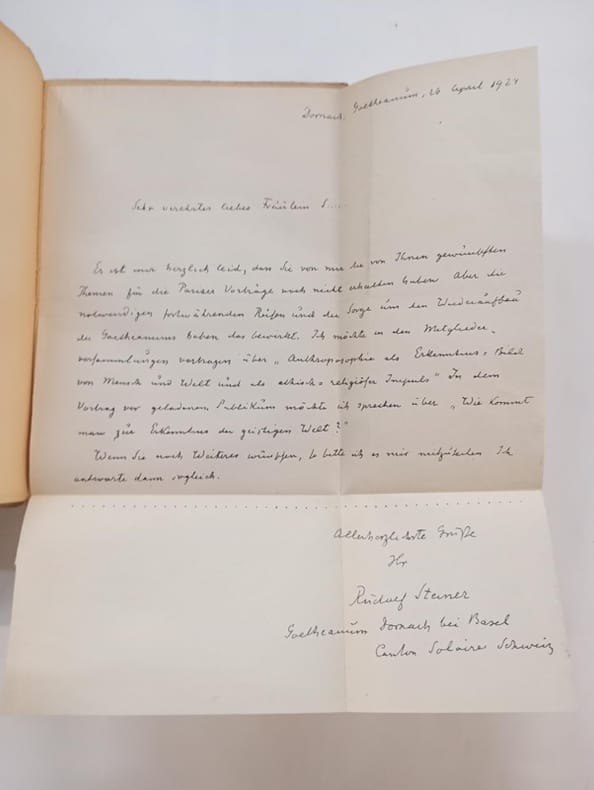 Dornach, Goetheanum, 26 April 1924
Sehr verehrtes liebes Fräulein S....
Es ist mir herzlich leid, dass Sie von mir die von Ihnen gewünschten
Themen für die Pariser Vorträge noch nicht erhalten haben. Aber die
notwendigen fortwährenden Reisen und die Sorge um den Wiederaufbau
des Goetheanums haben das bewirkt. Ich möchte in den Mitglieder-
versammlungen vortragen über „Anthroposophie als Erkenntnis-Bild
von Mensch und Welt und als ethisch-religiöser Impuls“ In dem
Vortrag vor geladenem Publikum möchte ich sprechen über „Wie kommt
man zur Erkenntnis der geistigen Welt?“
Wenn Sie noch Weiteres wünschen, so bitte ich es mir mitzuteilen Ich
antworte dann sogleich.
Allerherzlichste Grüße
Ihr
Rudolf Steiner
Goetheanum Dornach bei Basel
Canton Schweiz